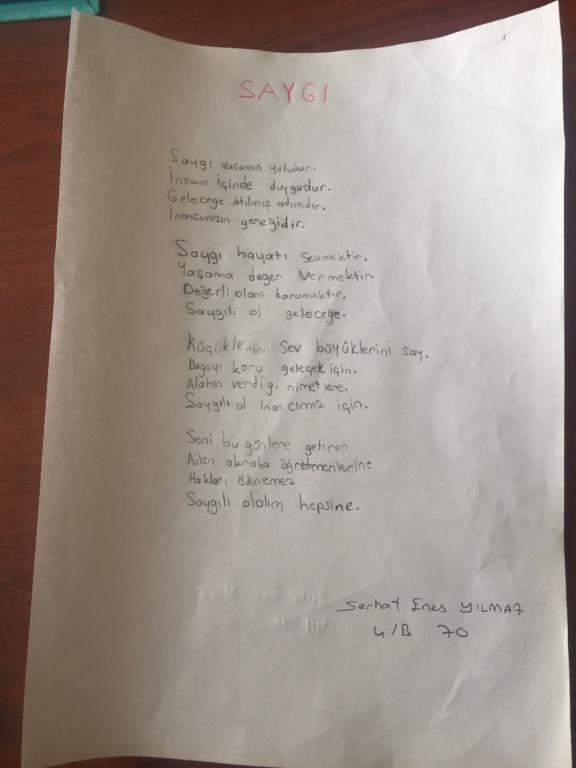 SAYGI
Saygı yaşamın yoludur.
İnsanın içinde duygudur.
Geleceğe atılmış adımdır.
İnancımızın gereğidir.
Saygı hayatı sevmektir.
Yaşama değer Vermektir.
Değerli olanı korumaktır.
Saygılı ol geleceğe.
Küçüklerini Sev büyüklerini say.
Dogayı koru geleçek için.
Alahın verdigi nimetlere.
Saygılı ol inancımız için.
Seni bu günlere getiren
Ailen akraba öğretmenlerine
Hakları ödenemez
Saygılı olalım hepsine.
Serhat Enes YILMAZ
4/B 70